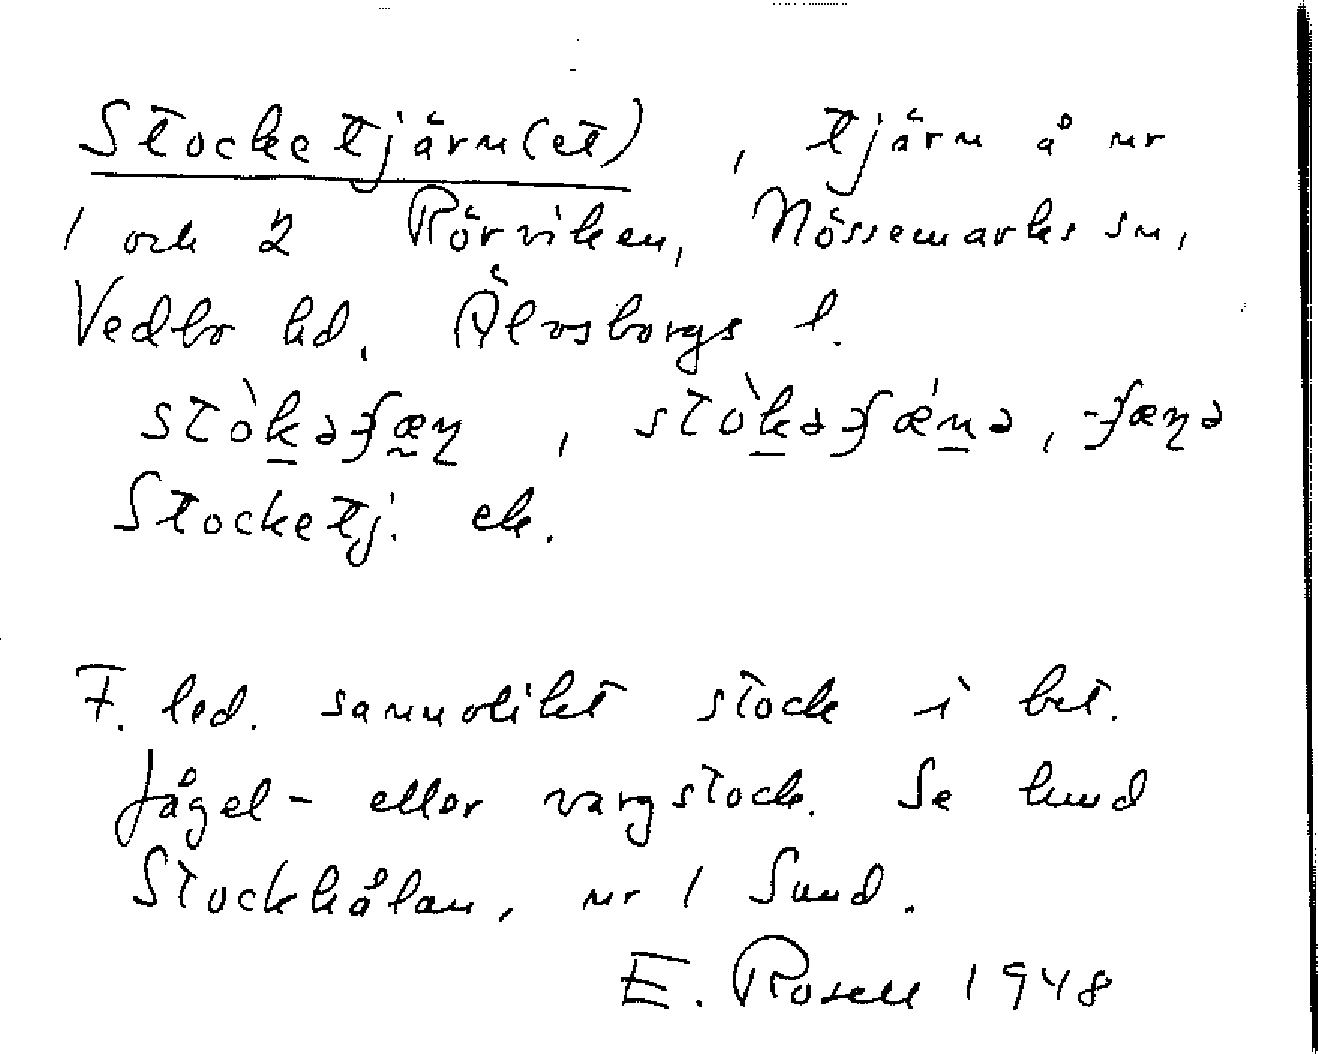 Stocketjärn(et), tjärn å nr
1 och 2 Rörviken, Nössemarks sn,
Vedbo hd, Älvsborgs l.
Stocketj. ek.
F. led. sannolikt stock i bet.
fågel- eller vargstock. Se
Stockhålan, nr 1 Sund.
E. Rosell 1948